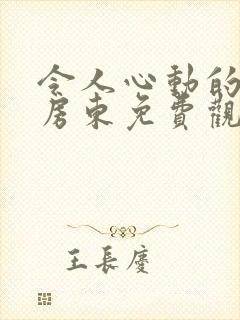 令人心動的
房東免費觀
王長慶